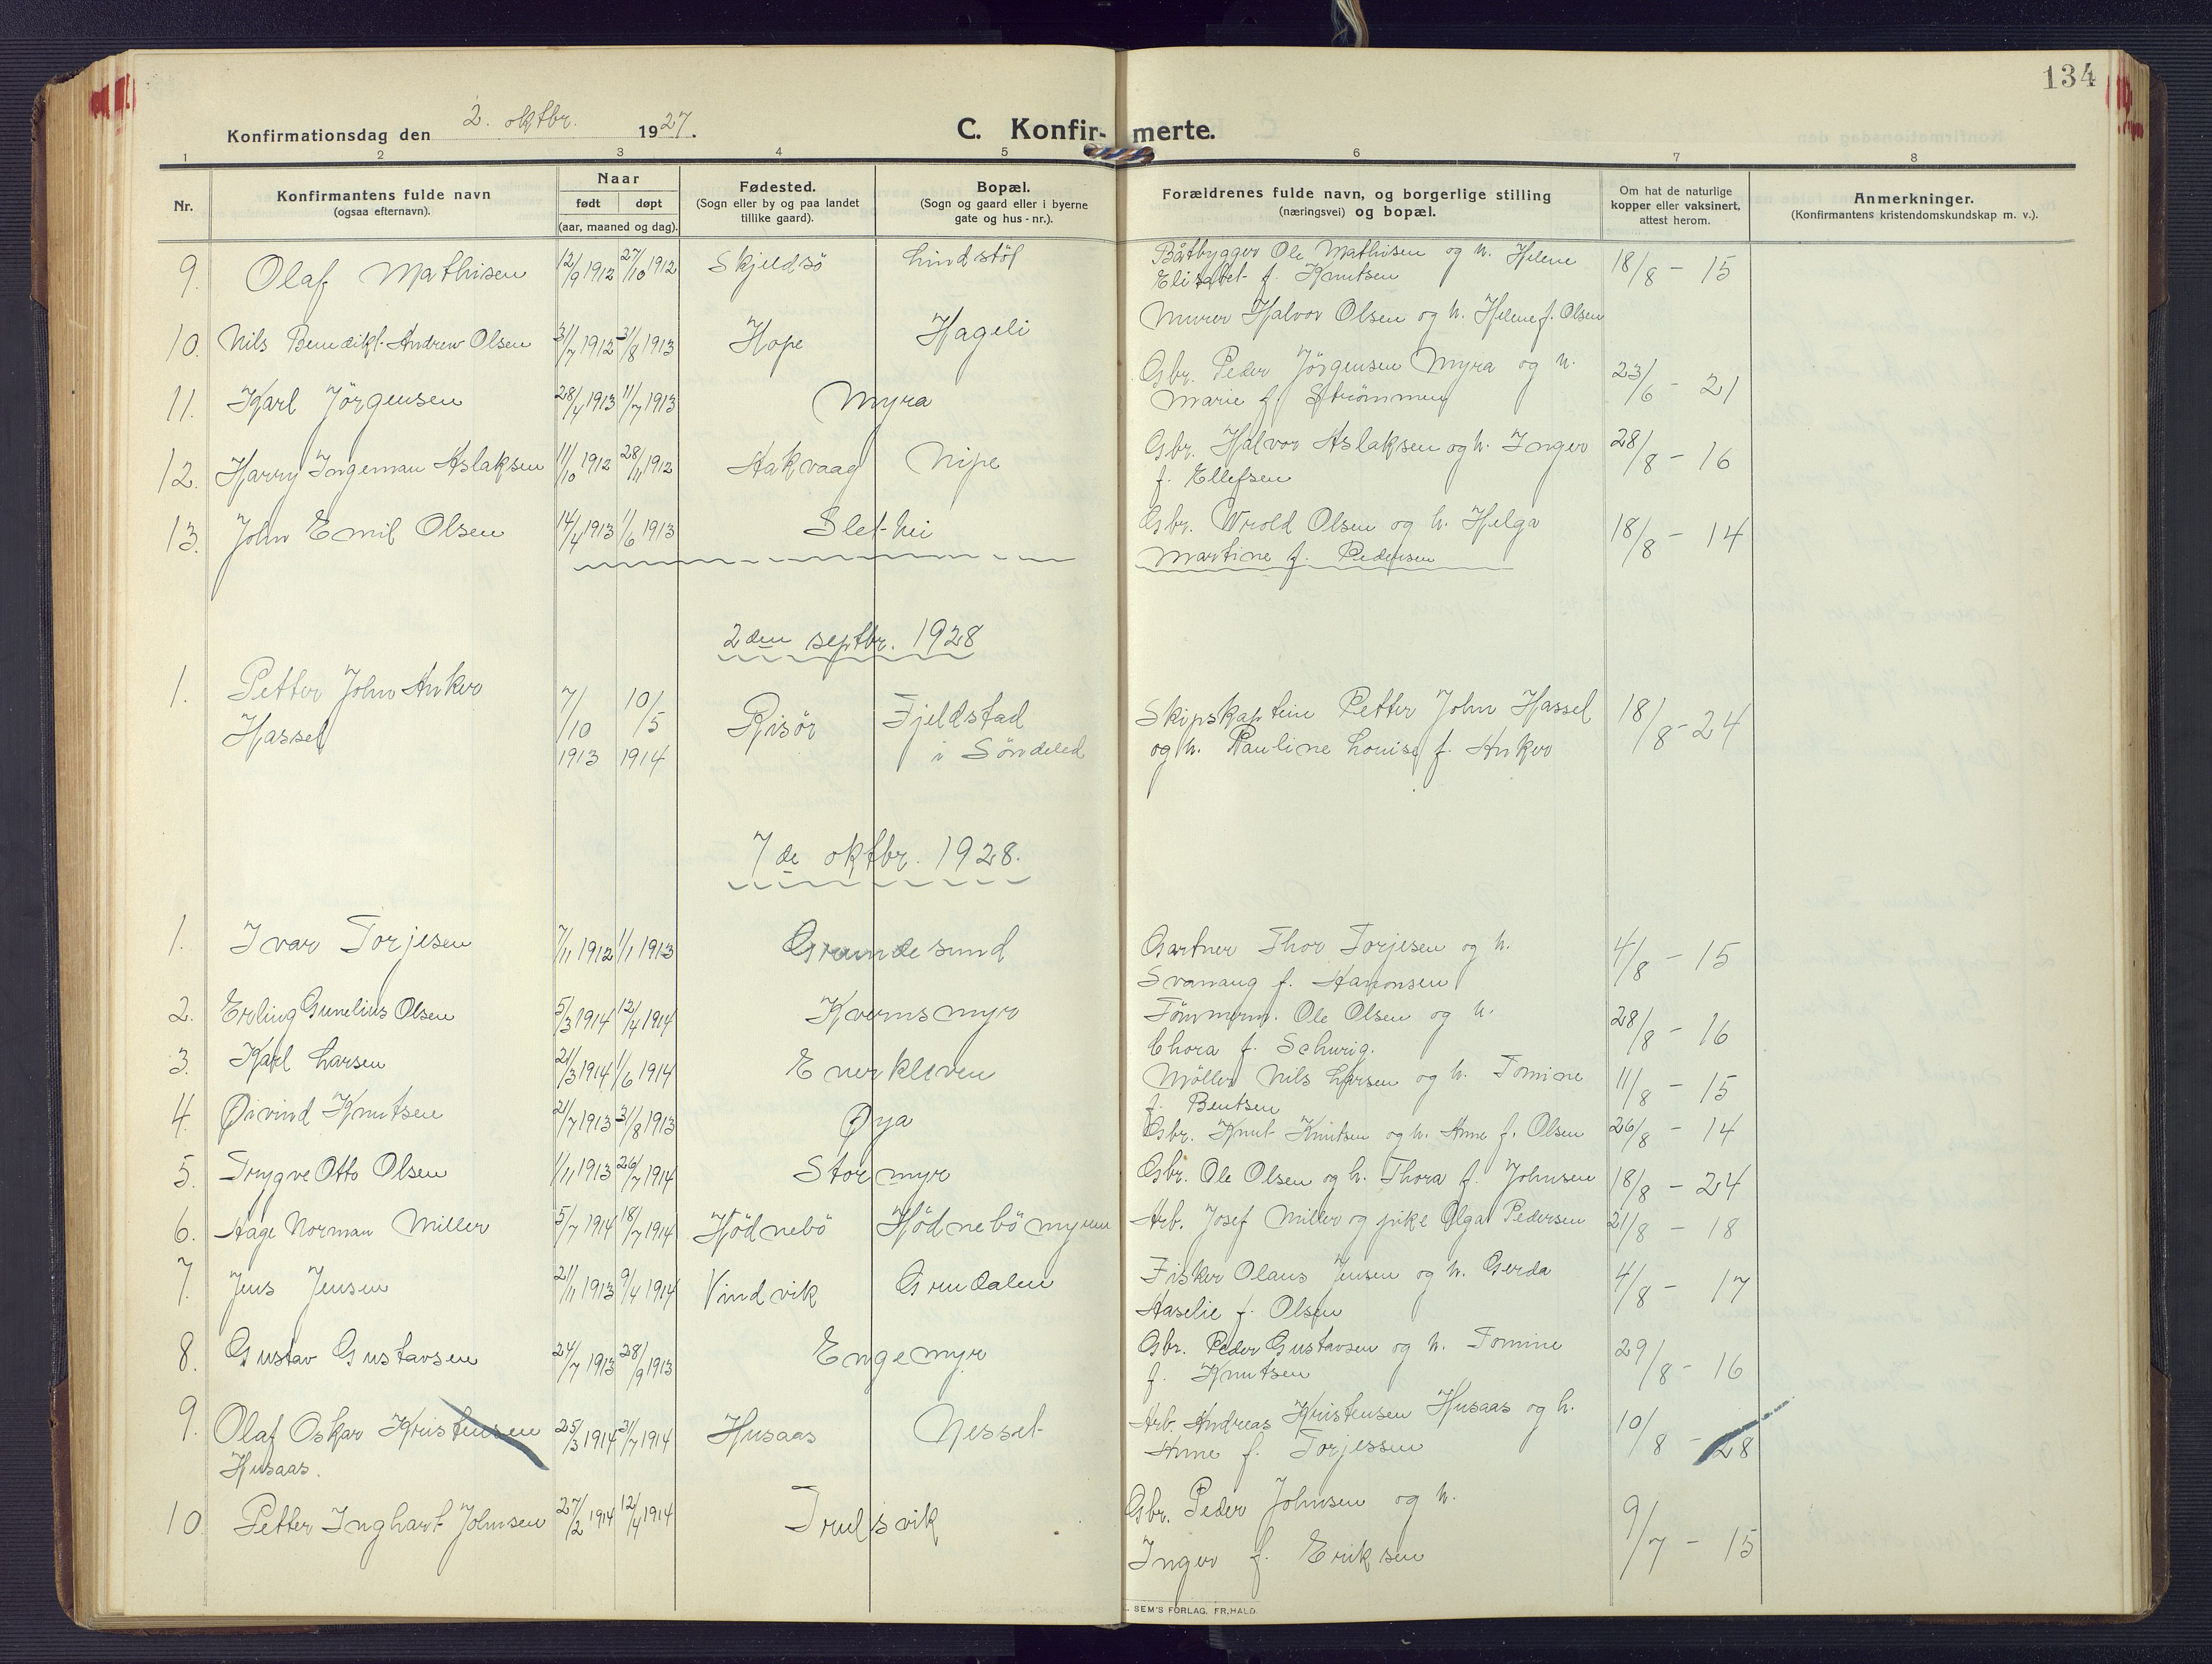 134
Konfirmationsdag den 2. oktbr. 1927.
C. Konfir- merte.
1 2 3 4 5 6 7 8
Nr.
Konfirmantens fulde navn
(ogsaa efternavn).
Naar
født døpt
(aar, maaned og dag).
Fødested.
(Sogn eller by og paa landet
tillike gaard).
Bopæl.
(Sogn og gaard eller i byerne
gate og hus-nr.).
Forældrenes fulde navn, og borgerlige stilling
(næringsvei) og bopæl.
Om hat de naturlige
kopper eller vaksinert,
attest herom.
Anmerkninger.
(Konfirmantens kristendomskundskap m. v.).
9. Olaf Mathisen 12/9 1912 27/10 1912 Skjeldsö Lindstöl Båtbygger Ole Mathisen og h. Helene 18/8 - 15
Elisabet f. Knutsen
10. Nils Benedikt Andrew Olsen 31/7 1912 31/8 1913 Hope Hageli Murer Halvor Olsen og h. Helene f. Olsen
11. Karl Jörgensen 28/4 1913 11/7 1913 Myra Gbr. Peder Jörgensen Myra og h. 23/6 - 21
Marie f. Strömmen
12. Harry Ingeman Aslaksen 11/10 1912 28/11 1912 Aakvaag Nipe Gbr. Halvor Aslaksen og h. Inger 28/8 - 16
f. Ellefsen
13. John Emil Olsen 14/4 1913 1/6 1913 Slethei Gbr. Wrold Olsen og h. Helga 18/8 - 14
Martine f. Pedersen
2den septbr. 1928
1. Petter John Anker 7/10 10/5 Risör Fjeldstad Skipskaptein Petter John Hassel 18/8 - 24
Hassel 1913 1914 i Söndeled og h. Pauline Louise f. Anker
7de oktbr. 1928.
1. Ivar Torjesen 7/11 1912 1/1 1913 Grundesund Gartner Thor Torjesen og h. 4/8 - 15
Svanaug f. Aanonsen
2. Erling Gunelius Olsen 5/3 1914 12/4 1914 Kvernsmyr Tömmerm. Ole Olsen og h. 28/8 - 16
Chora f. Schwrig.
3. Karl Larsen 21/3 1914 1/6 1914 Enerkleven Møller Nils Larsen og h. Tomine 11/8 - 15
f. Bentsen
4. Øivind Knutsen 21/7 1913 31/8 1913 Øya Gbr. Knut Knutsen og h. Anne f. Olsen 26/8 - 14
5. Trygve Otto Olsen 1/11 1913 26/7 1914 Stormyr Gbr. Ole Olsen og h. Thora f. Johnsen 18/8 - 24
6. Aage Norman Miller 5/7 1914 18/7 1914 Hödnebö Hödnebömyren Arb. Josef Miller og pike Olga Pedersen 21/8 - 18
7. Jens Jensen 21/11 1913 9/4 1914 Vindvik Grudalen Fisker Olaus Jensen og h. Gerda 4/8 - 17
Aaselie f. Olsen
8. Gustav Gustavsen 24/7 1913 28/9 1913 Engemyr Gbr. Peder Gustavsen og h. Tomine 29/8 - 16
f. Knutsen
9. Olaf Oskar Kristensen 25/3 1914 31/7 1914 Husaas Nesset Arb. Andreas Kristensen Husaas og h. 10/8 - 28
Husaas. Anne f. Torjessen
10 Petter Inghart Johnsen 27/2 1914 12/4 1914 Trulsvik Gbr. Peder Johnsen og h. 9/7 - 15
Inger f. Eriksen
SEM'S FORLAG. FR.HALD.